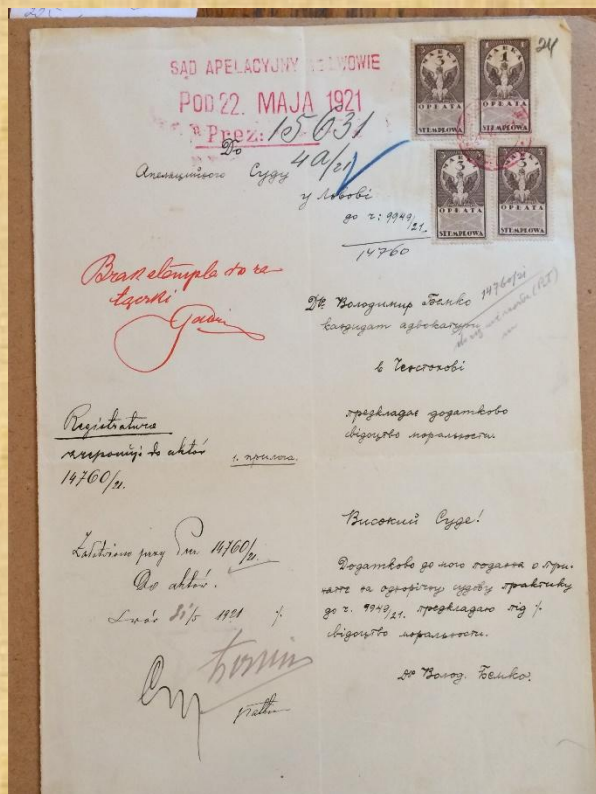 24
SĄD APELACYJNY WE LWOWIE
POD 22. MAJA 1921
Prez: 15631
4a/21
MARKA 3 OPŁATA STEMPLOWA
MARKA 1 OPŁATA STEMPLOWA
OPŁATA STEMPLOWA
OPŁATA STEMPLOWA
До
Апеляційного Суду
у Львові
до ч: 9949/21.
14760
Brak stempla do za
łączki
Др. Володимир Бемко
14760/21
кандидат адвокатури
в
предкладає додатково
свідоцтво моральности.
Registratura
do aktów
14760/21.
1. прилога.
Високий Суде!
Załatwiono przy Prez 14760/21.
Do aktów.
Lwów 1921
Додатково до мого подання о при-
на однорічну судову практику
до ч. 9949/21. предкладаю під ·/.
свідоцтво моральности.
Др Волод. Бемко.